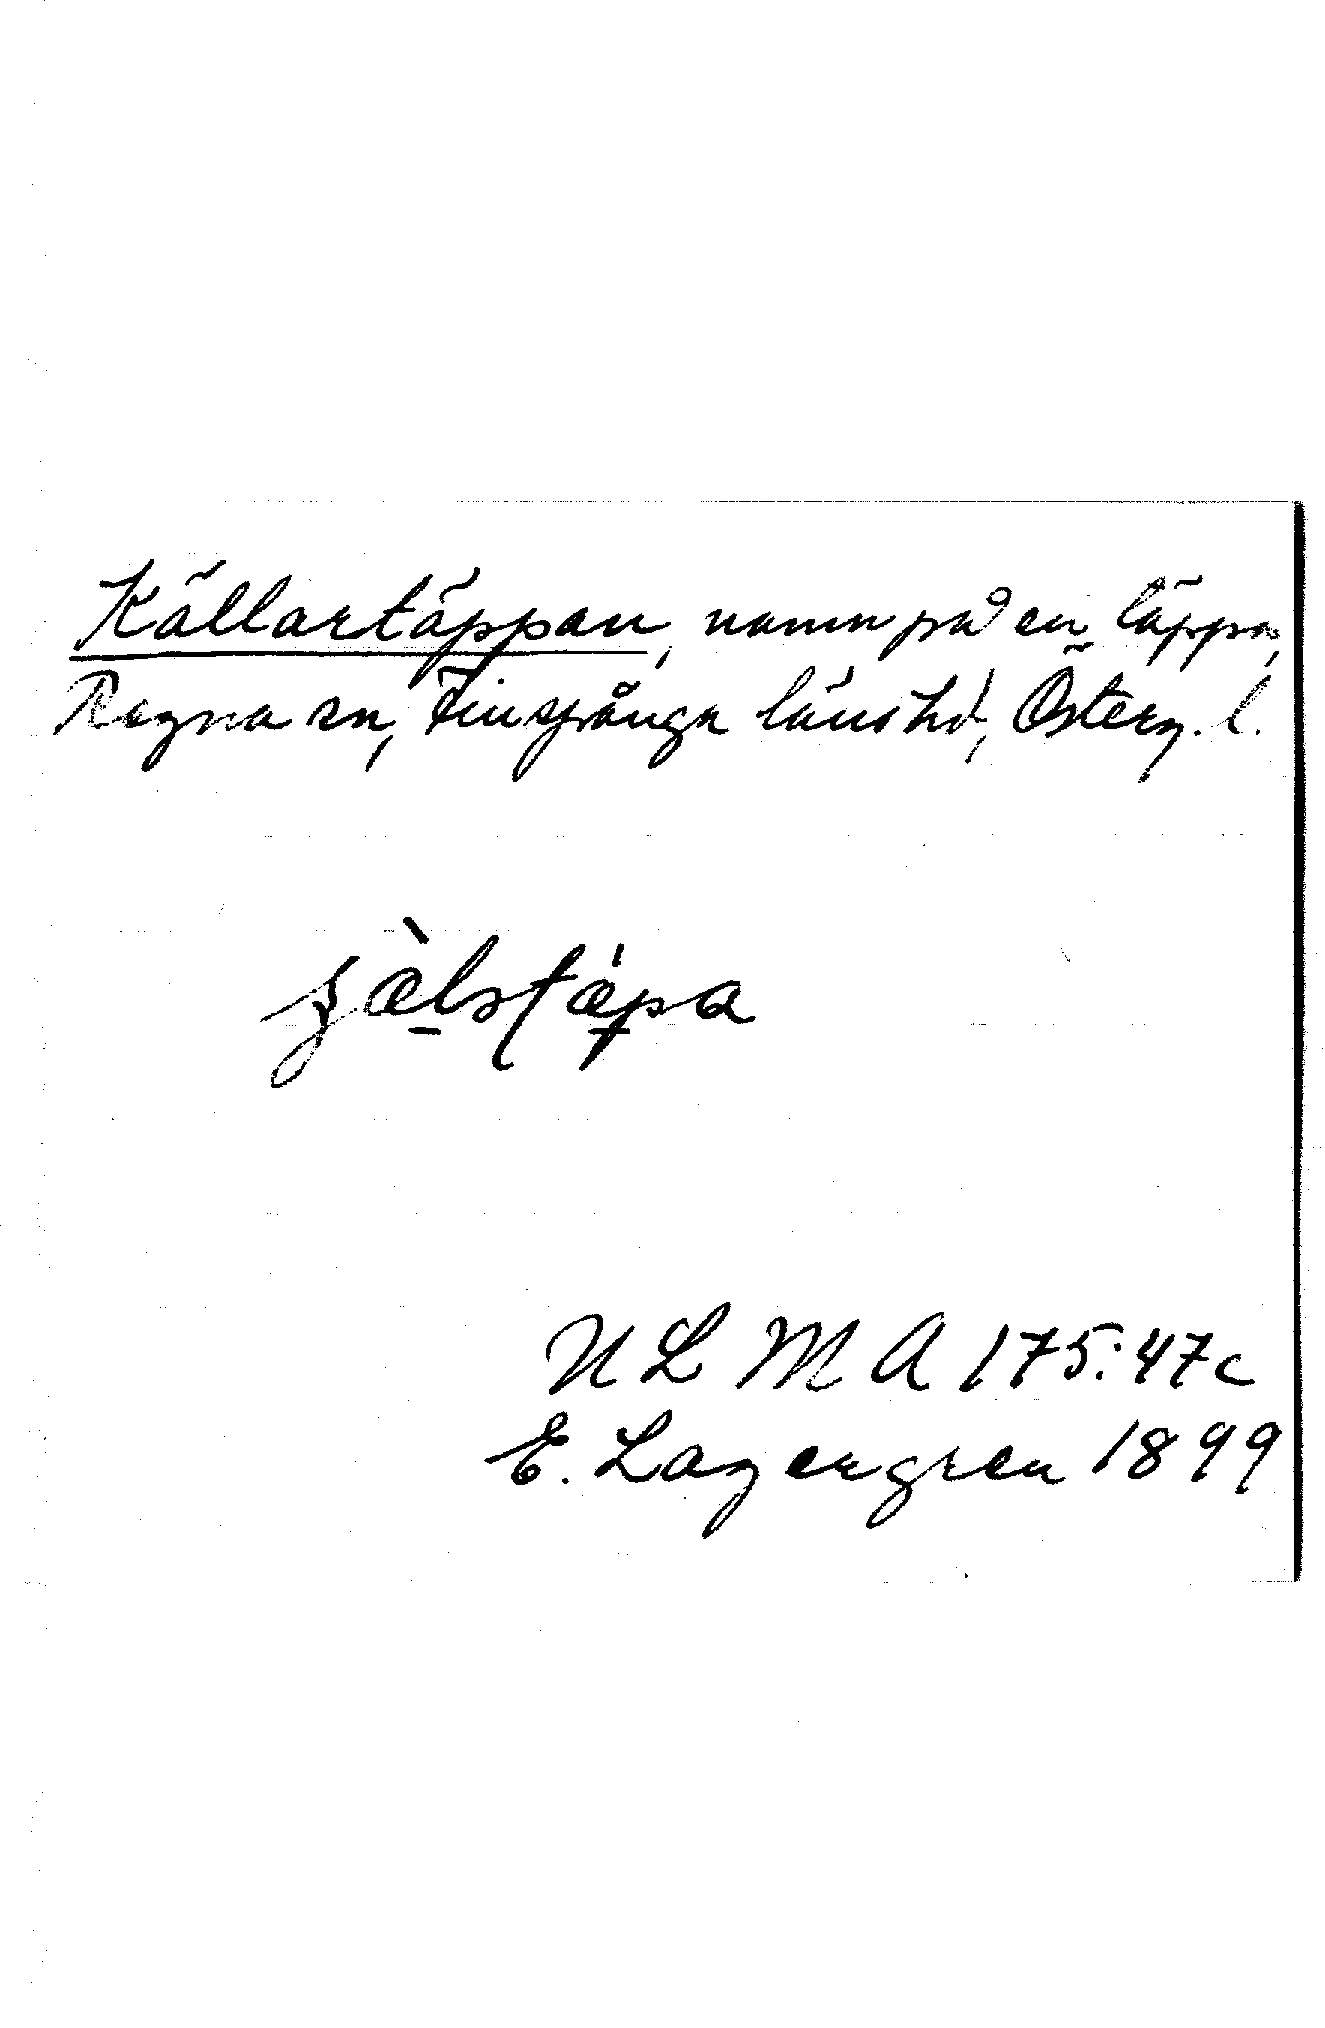 Källartäppan, namn på en täppa,
Regna sn, Finspånga läns hd, Österg. l.
ULMA 175:47c
E. Lagergren 1899